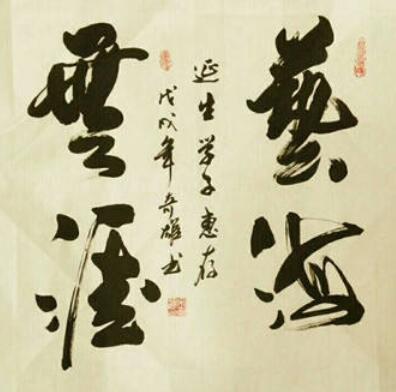 藝海
無涯
延生学子惠存
戊戌年奇雄书